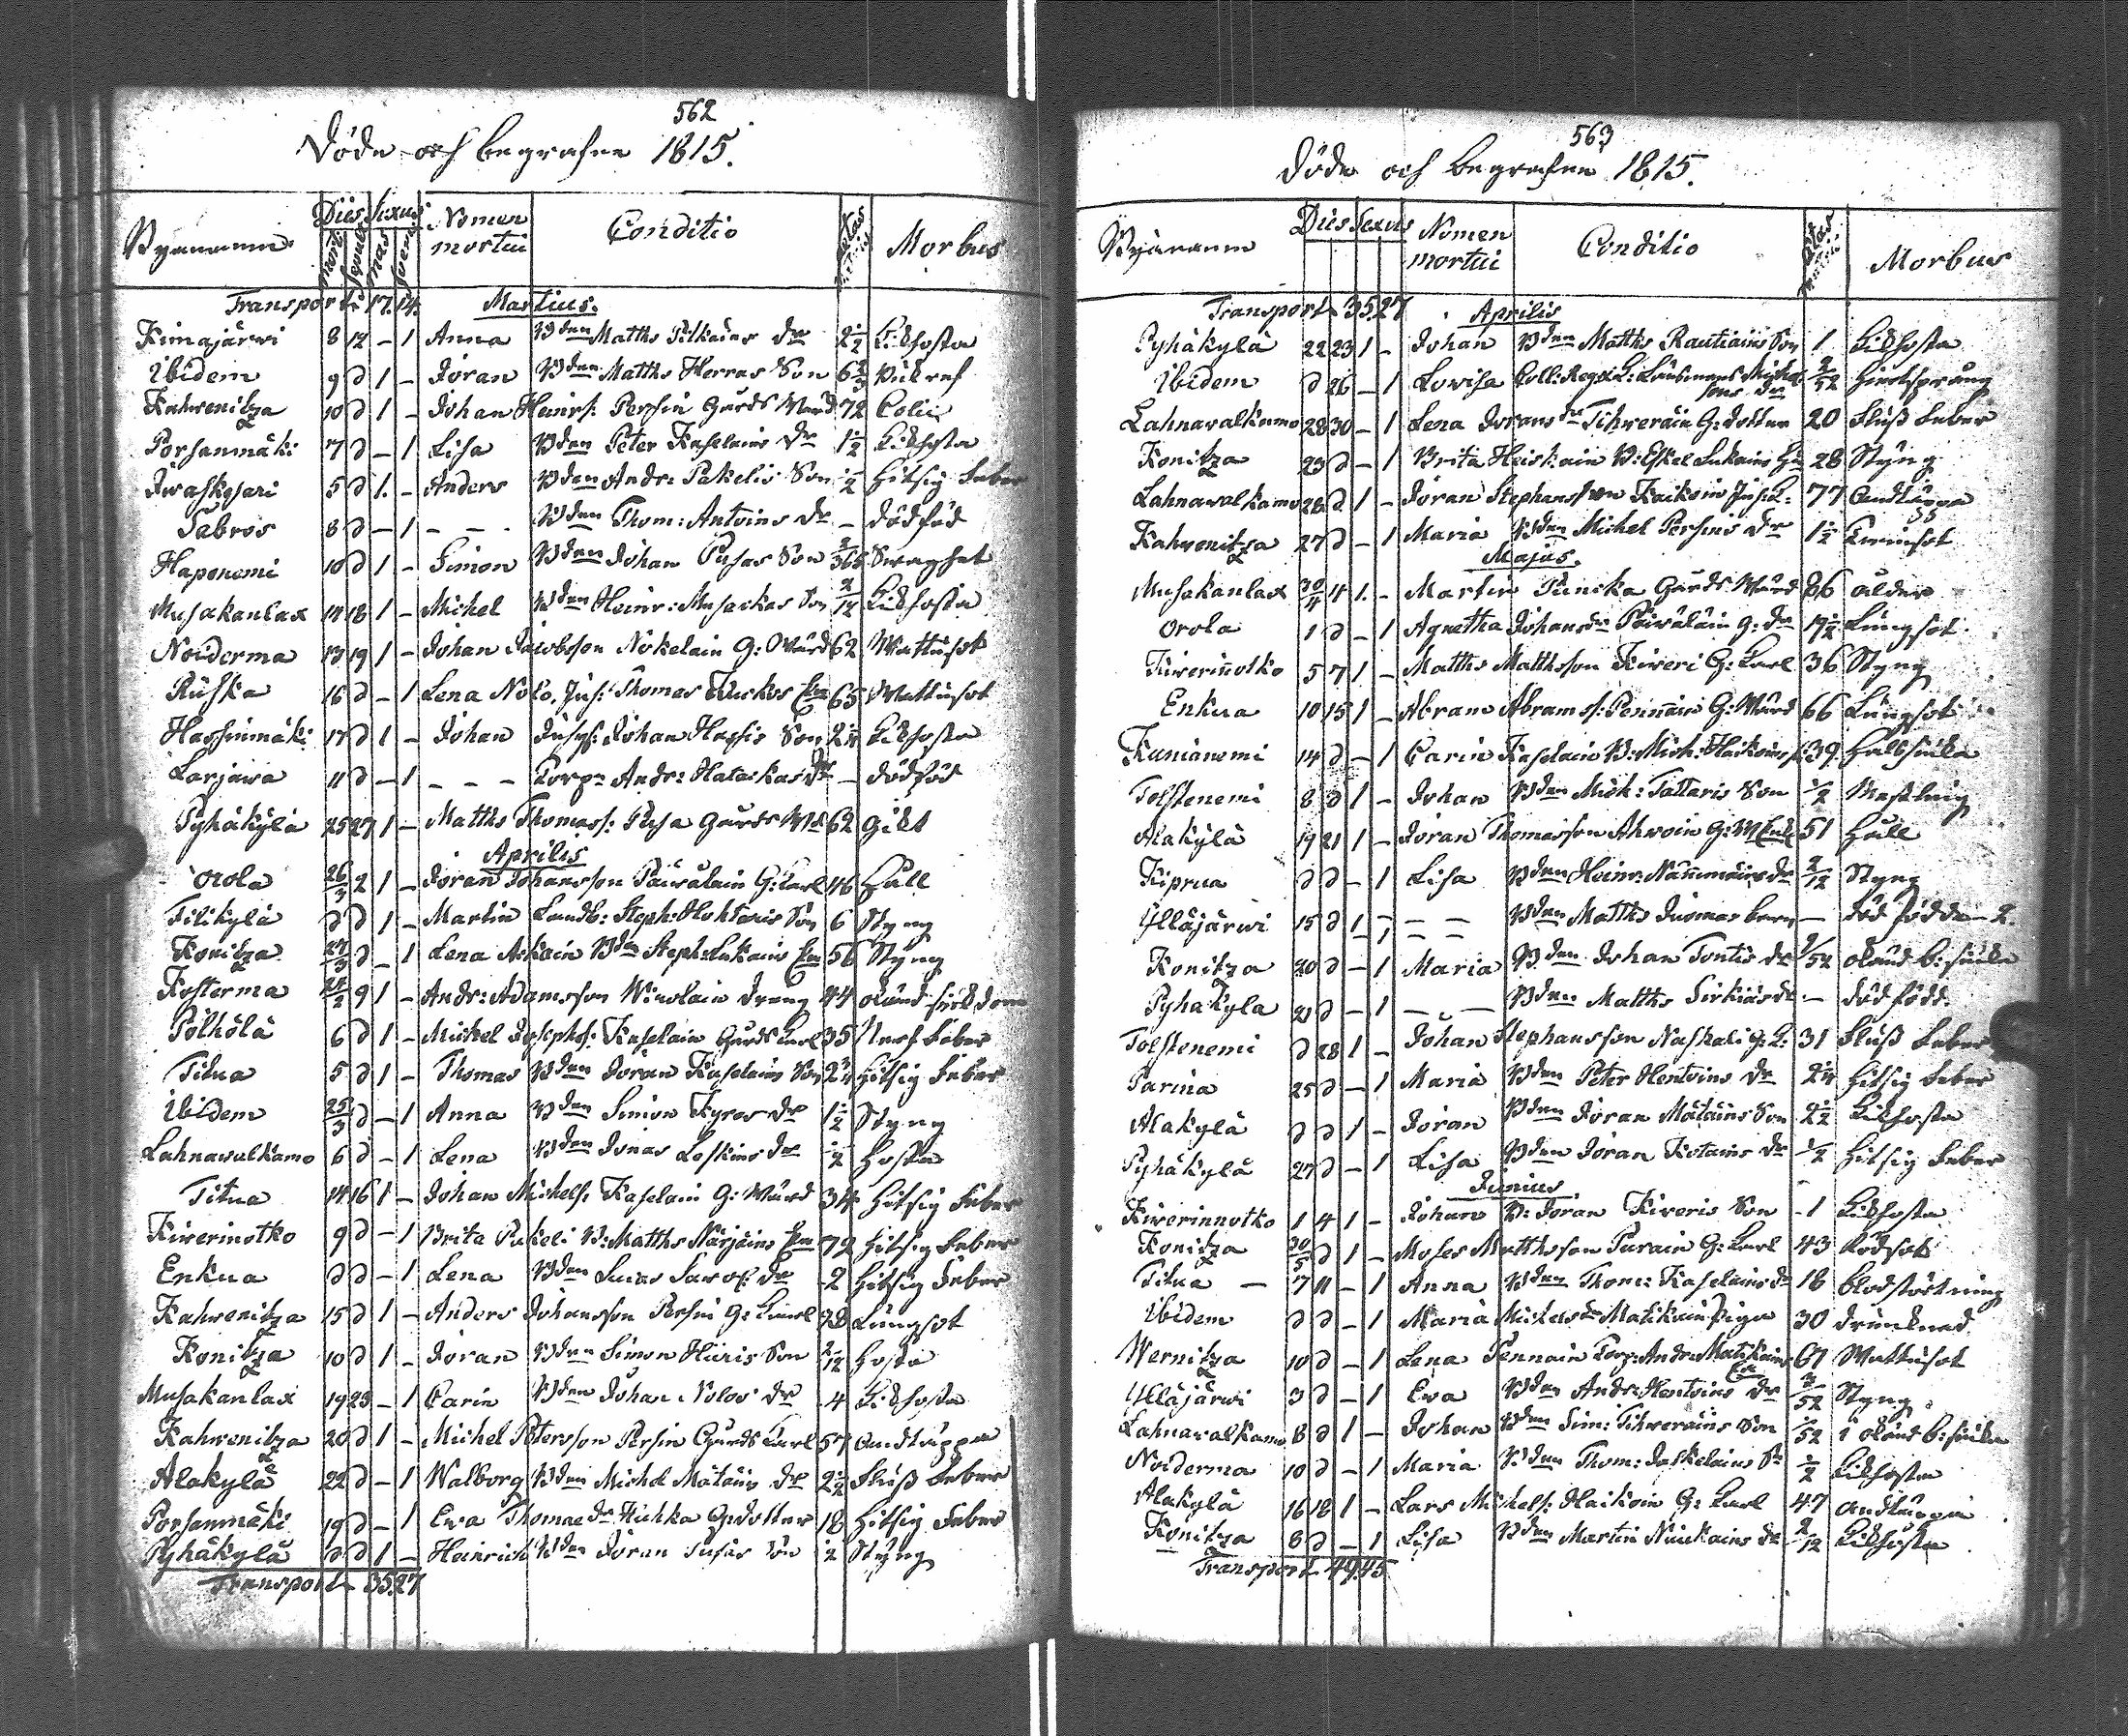 562
Döde och begrafne 1815.
Bynamn Dies Sexus Nomen mortui Conditio Ætas Morbus
mort. sepult. mas foem.
Transport 17. 14. Martius.
Kimajärwi 8 12 – 1 Anna Bden Matths Pilkäins dr 2 1/2 Kikhosta
Ibidem 9 d 1 – Jöran Bden Matths Herras Son
Kahrenitza 10 d 1 – Johan Heinrs: Persin Gårds Wärd 72 Colic
Porsanmäki 7 d – 1 Lisa Bden Peter Kaselains dr 1 1/2 Kikhosta
5 d 1. – Anders Bden Andr: Pakelis Son 1/2 Hitsig Feber
Tabros 8 d – 1 – – – Bden Thom: Antoins dr – dödföd
Haponemi 10 d 1 – Simon Bden Johan Pusas Son 2/365 Swaghet
Musakanlax 14 18 1 – Michel Bden Heinr: Musackas Son 2/12 Kikhosta
Noiderma 13 19 1 – Johan Jacobsson Nokelain G: Wärd 62 Wattusot
Ruska 16 d – 1 Lena Nolo, Jnh: Thomas 65 Wattusot
Hassinmäki 17 d 1 – Johan Johan Hassis Son 2 1/4 Kikhosta
Larjawa 11 d – 1 – – – Corp: Andr: Hatackas dr – dödföd
Pyhäkylä 25 27 1 – Matths Thomass: Pusa Gårds Wd 62 Gikt
Aprilis
Orola 26/3 2 1 – Jöran Johansson Päiwäläin G: Karl 46 Håll
Tilikylä d d 1 – Martin Landb: Steph: Hohtaris Son 6 Styng
Konitza 27/3 d – 1 Lena Askain Bdn Steph: Lukains Enk 56 Styng
Kosterma 9 1 – Andr: Adamsson Wirolain dräng 44 okänd sjukdom
Pölhölä 6 d 1 – Mickel Josephs: Kaselain Gårds Karl 35 Nerf Feber
Titua 5 d 1 – Thomas Bden Jöran Kaselains Son Hitsig Feber
Ibidem 25/3 d – 1 Anna Bden Simon Kyros dr 1 1/2 Styng
Lahnawalkamo 6 d – 1 Lena Bden Jonas Loskins dr 1/2 Hosta
Titua 14 16 1 – Johan Michels: Kaselain G: Wärd 34 Hitsig Feber
Kiwerinotko 9 d – 1 Brita Pakeli B: Matths Närjäins Enk 72 Hitsig Feber
Enkua d d – 1 Lena Bden Lucas dr 2 Hitsig Feber
Kahrenitza 15 d 1 – Anders Johansson Persin G: Karl 28 Lungsot
Konitza 10 d 1 – Jöran Bden Simon Hiiris Son 2/12 Hosta
Musakanlax 19 23 – 1 Carin Bden Johan Nolos dr 4 Kikhosta
Kahrenitza 20 d 1 – Michel Petersson Persin Gårds Karl 57 Andtäppa
Alakylä 22 d – 1 Walborg Bden Michel Mätäins dr 2 1/2 Fluß Feber
Porsanmäki 19 d – 1 Ewa Thomasdr Huhka G: dotter 18 Hitsig Feber
Pyhäkylä d d 1 – Heinrich Bden Jöran Son 1/2 Styng
Transport 35. 27
563
Döde och begrafne 1815.
Bynamn Dies Sexus Nomen mortui Conditio Ætas Morbus
Transport 35. 27 Aprilis
Pyhäkylä 22 23 1 – Johan Bden Matths Rautiains Son 1 Kikhosta
Ibidem d 26 – 1 Lowisa Coll: Reg: L: Länsmans 2/52 Hiertsprång
Lahnawalkamo 28 30 – 1 Lena Joransdr Tihweräin G: dotter 20 Fluß Feber
Konitza 23 d – 1 Brita Heiskain B: Eskel Lukains Hu 28 Styng
Lahnawalkamo 28 d 1 – Jöran Stephansson Kaikoin 77 Andtäppa
Kahrenitza 27 d – 1 Maria Bden Michel Persins dr 1 1/2
Majus.
Musakanlax 30/4 4 1. – Martin Tuncka Gårds Wärd 86 ålder
Orola 1 d – 1 Agnetha Johansdr Päiwäläin g: dr 19 1/2 Lungsot
Kiwerinotko 5 7 1 – Matths Matthsson Kiweri G: Karl 36 Styng
Enkua 10 15 1 – Abram Abrams: Pennäin G: Wärd 66 Lungsot
Kunianemi 14 d – 1 Carin Kaselain B: Mich: Haikoins 39. Halssiuka
Tolstenemi 8 d 1 – Johan Bden Mich: Tattaris Son 1/2 Masling
Alakylä 19 21 1 – Jöran Thomasson Ahwoin G: M 51 Håll
Kiprua d d – 1 Lisa Bden Heinr: dr 2/12 Styng
Ylläjärwi 15 d 1 – – – – Bden Matths Juomas barn – död födde 2.
Konitza 20 d – 1 Maria Bden Johan Tontis dr 2/52 okänd b: siuka
Pyhäkylä 21 d – 1 – – – Bden Matths Sirkiäs dr – död född.
Tolstenemi d 28 1 – Johan Stephansson Naskali g: K: 31 Fluß Feber
Parina 25 d – 1 Maria Bden Peter Hentoins dr 2 1/4 Hitsig Feber
Alakylä d d 1 – Jöran Bden Jöran Mätäins Son 2 1/2 Kikhosta
Pyhäkylä 27 d – 1 Lisa Bden Jöran Kotains dr 1/2 Hitsig Feber
Junius.
Kiwerinnotko 1 4 1 – Johan B: Jöran Kiweris Son 1 Kikhosta
Konitza 30/5 d 1 – Moses Matthsson Purain G: Karl 43 Rödsot
Titua – 7 11 – 1 Anna Bden Thom: Kaselains dr 16 Blodstörtning
Ibidem d d – 1 Maria Mickelsdr Matikain Piga 30 drunknad
Wernitza 10 d – 1 Lena Pennain Corp: Andr: Matikains Enk 67 Wattusot
Ylläjärwi 3 d – 1 Ewa Bden Andr: Hentoins dr 3/52 Styng
Lahnawalkamo 8 d 1 – Johan Bden Sim: Tihweräins Son 1/52 okänd b: siuka
Noiderma 10 d – 1 Maria Bden Thom: Jaskelains dr 1/2 Kikhosta
Alakylä 16 18 1 – Lars Michels: Haikoin G: Karl 47 Andtäppa
Konitza 8 d – 1 Lisa Bden Martin Niuckains dr 2/12 Kikhosta
Transport 49. 45